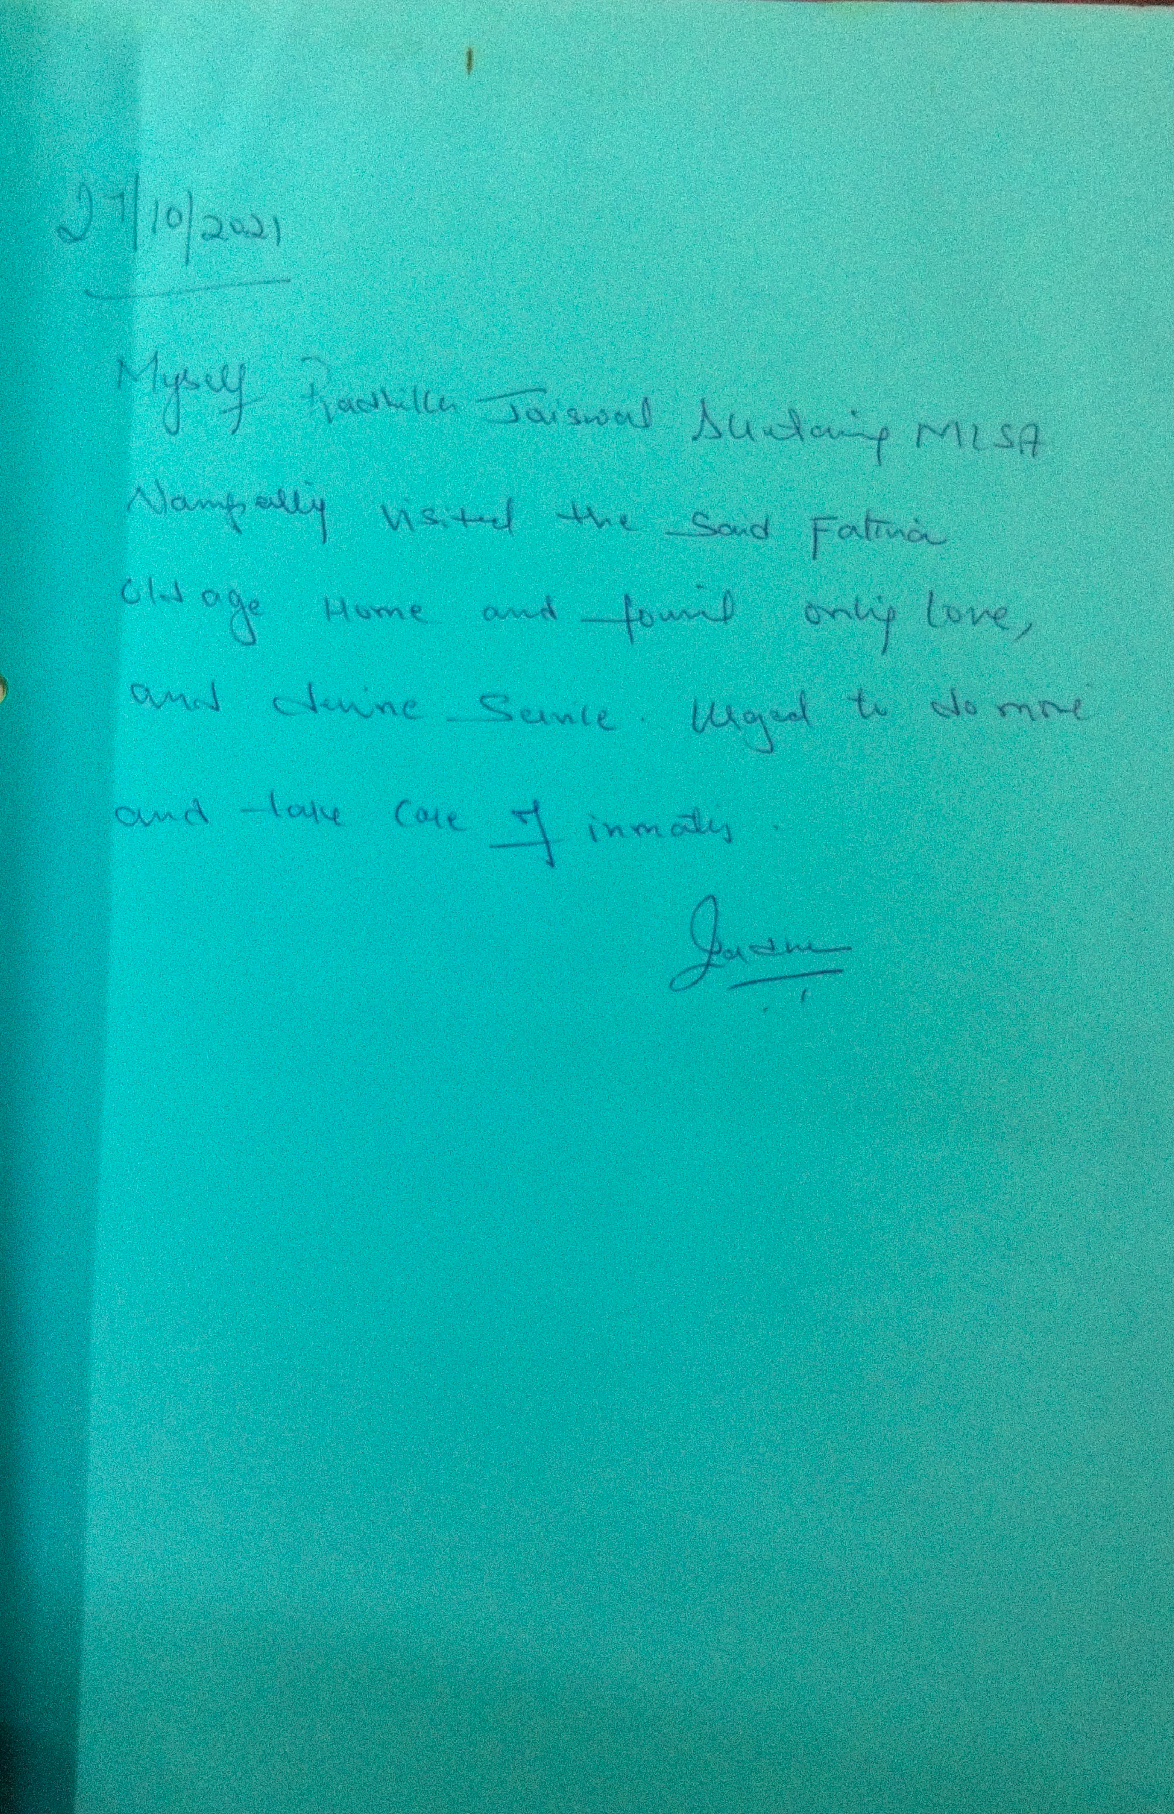 27/10/2021
Myself Radhika Jaiswal Secretary MLSA
Nampally visited the said Fatima
Old age Home and found only love,
and divine Service. Urged to do more
and take care of inmates.